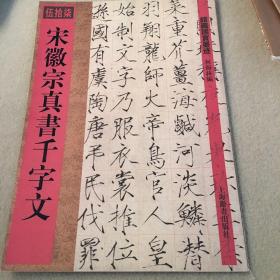 伍拾柒
宋徽宗真書千字文
菜重芥薑海鹹河淡鱗潛
羽翔龍師火帝鳥官人皇
始制文字乃服衣裳推位
國有虞陶唐弔民伐罪
上海辭書出版社